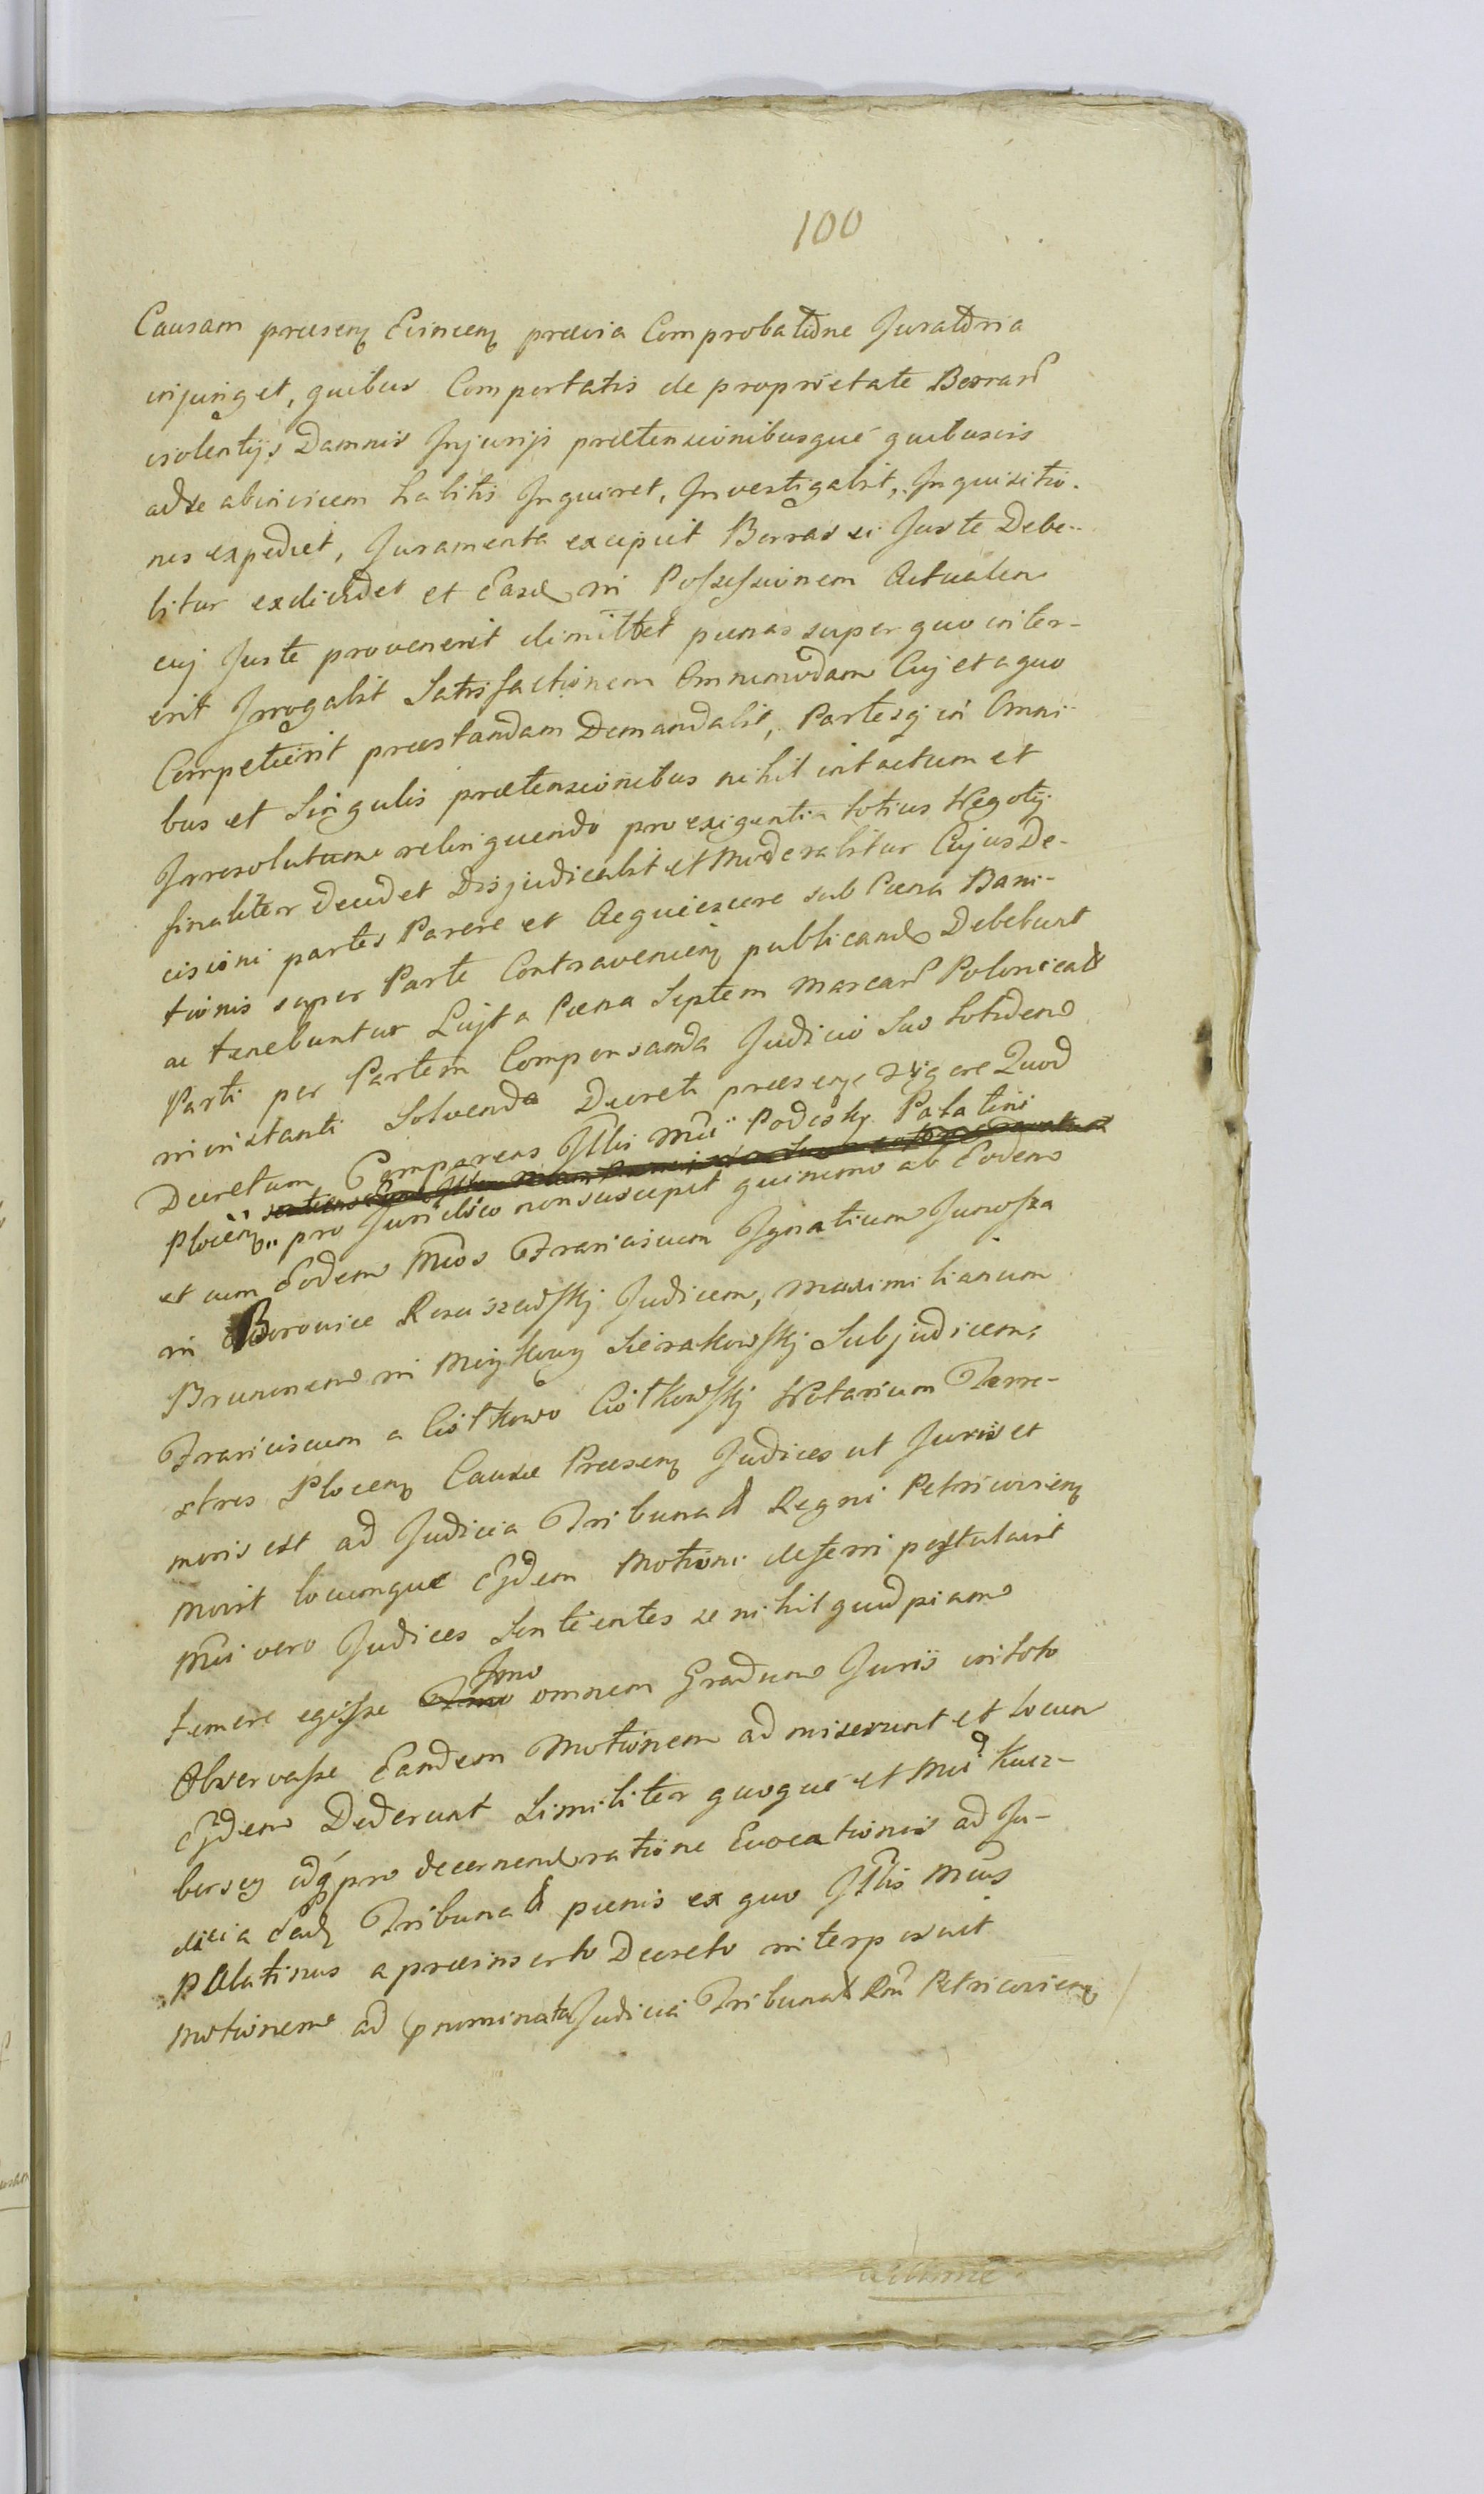 100
Causam præsenꝫ Evincenꝫ prævia Comprobatione Juratoria
injunget, quibus Comportatis de proprietate Borrarũ
violentijs Damnis Injurijs prætensionibusque quibusvis
ad se abinvicem habitis Inquiret, Investigabit, Inquisitio-
nes expediet, Juramenta excipiet Borras si Juste Debe-
bitur exdividet et Easd in Possessionem Actualem
cuj Juste provenerit dimittet pænas super quo inter-
erit Irrogabit Satisfactionem Omnimodam Cuj et a quo
Competierit præstandam Demandabit, Partesq in Omni-
bus et Singulis prætensionibus nihil intactum et
Irresolutum relinquendo pro exigentia totius Negotij
finaliter decidet Disjudicabit et Moderabitur Cujus De-
cisioni partes Parere et Acquiescere sub Pæna Bani-
tionis super Parte Contravenienꝫ publicand Debebunt
ac tenebuntur Luita Pæna Septem Marcarũ Polonical
Parti per Partem Compensanda Judicio Suo totidem
in instanti Solvenda Decreti præsenꝫ Vigore Quod
Decretum Comparens Illis Mũs Podoski Palatini
Plocenꝫ pro Juridico non suscepit quinimo ab Eodem
et cum Eodem Mũos Franciscum Ignatium Junosza
in Borowice Rosciszewskj Judicem, Maximilianum
Brunonem in Sierakowskj Subjudicem,
Franciscum a Ciołkowo Ciołkowskj Notarium Terre-
stres Plocenꝫ Causæ Præsenꝫ Judices ut Juris et
moris est ad Judicia Tribunal Regni Petricovienꝫ
Movit locumque Ejdem Motioni deferri postulavit
Mũi vero Judices Sentientes se nihil quidpiam
temere egisse Imo omnem Gradum Juris in toto
Observasse Eandem Motionem admiserunt et locum
Ejdem Dederunt Similiter quoque et Mũi Kucz-
borscy idq pro decernend ratione Evocationis ad Ju-
dicia Ead Tribunal pænis ex quo Illis Mũs
Palatinus a præinserto Decreto interposuit
Motionem ad prominata Judicia Tribunal Rnĩ Petricovienꝫ